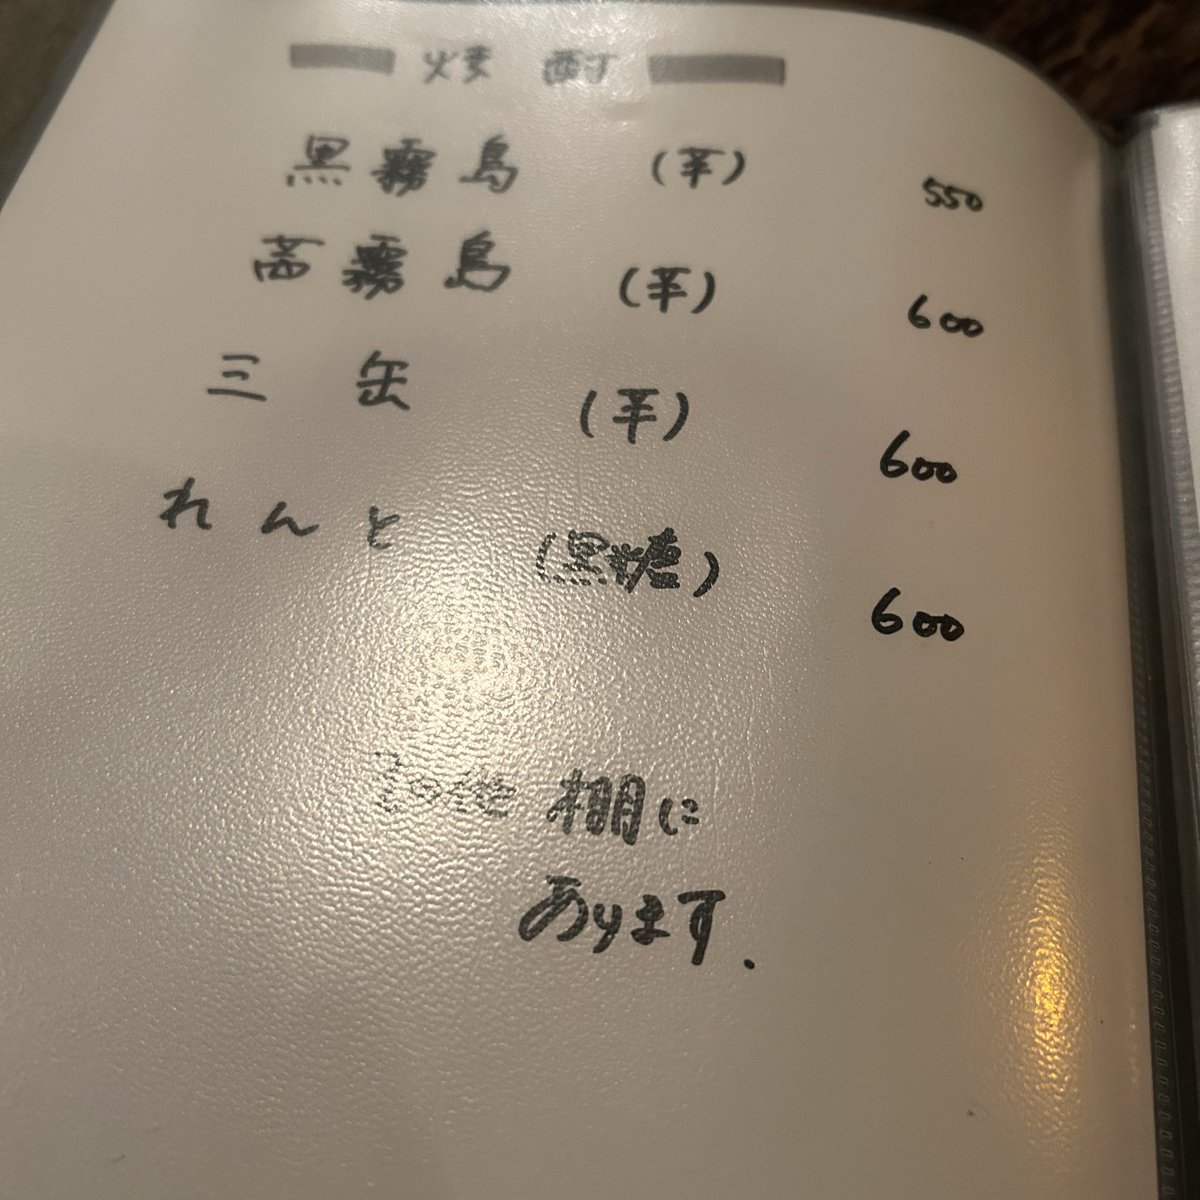 焼酎
黒霧島 (芋) 550
茜霧島 (芋) 600
三岳 (芋) 600
れんと (黒糖) 600
その他 棚に
あります.